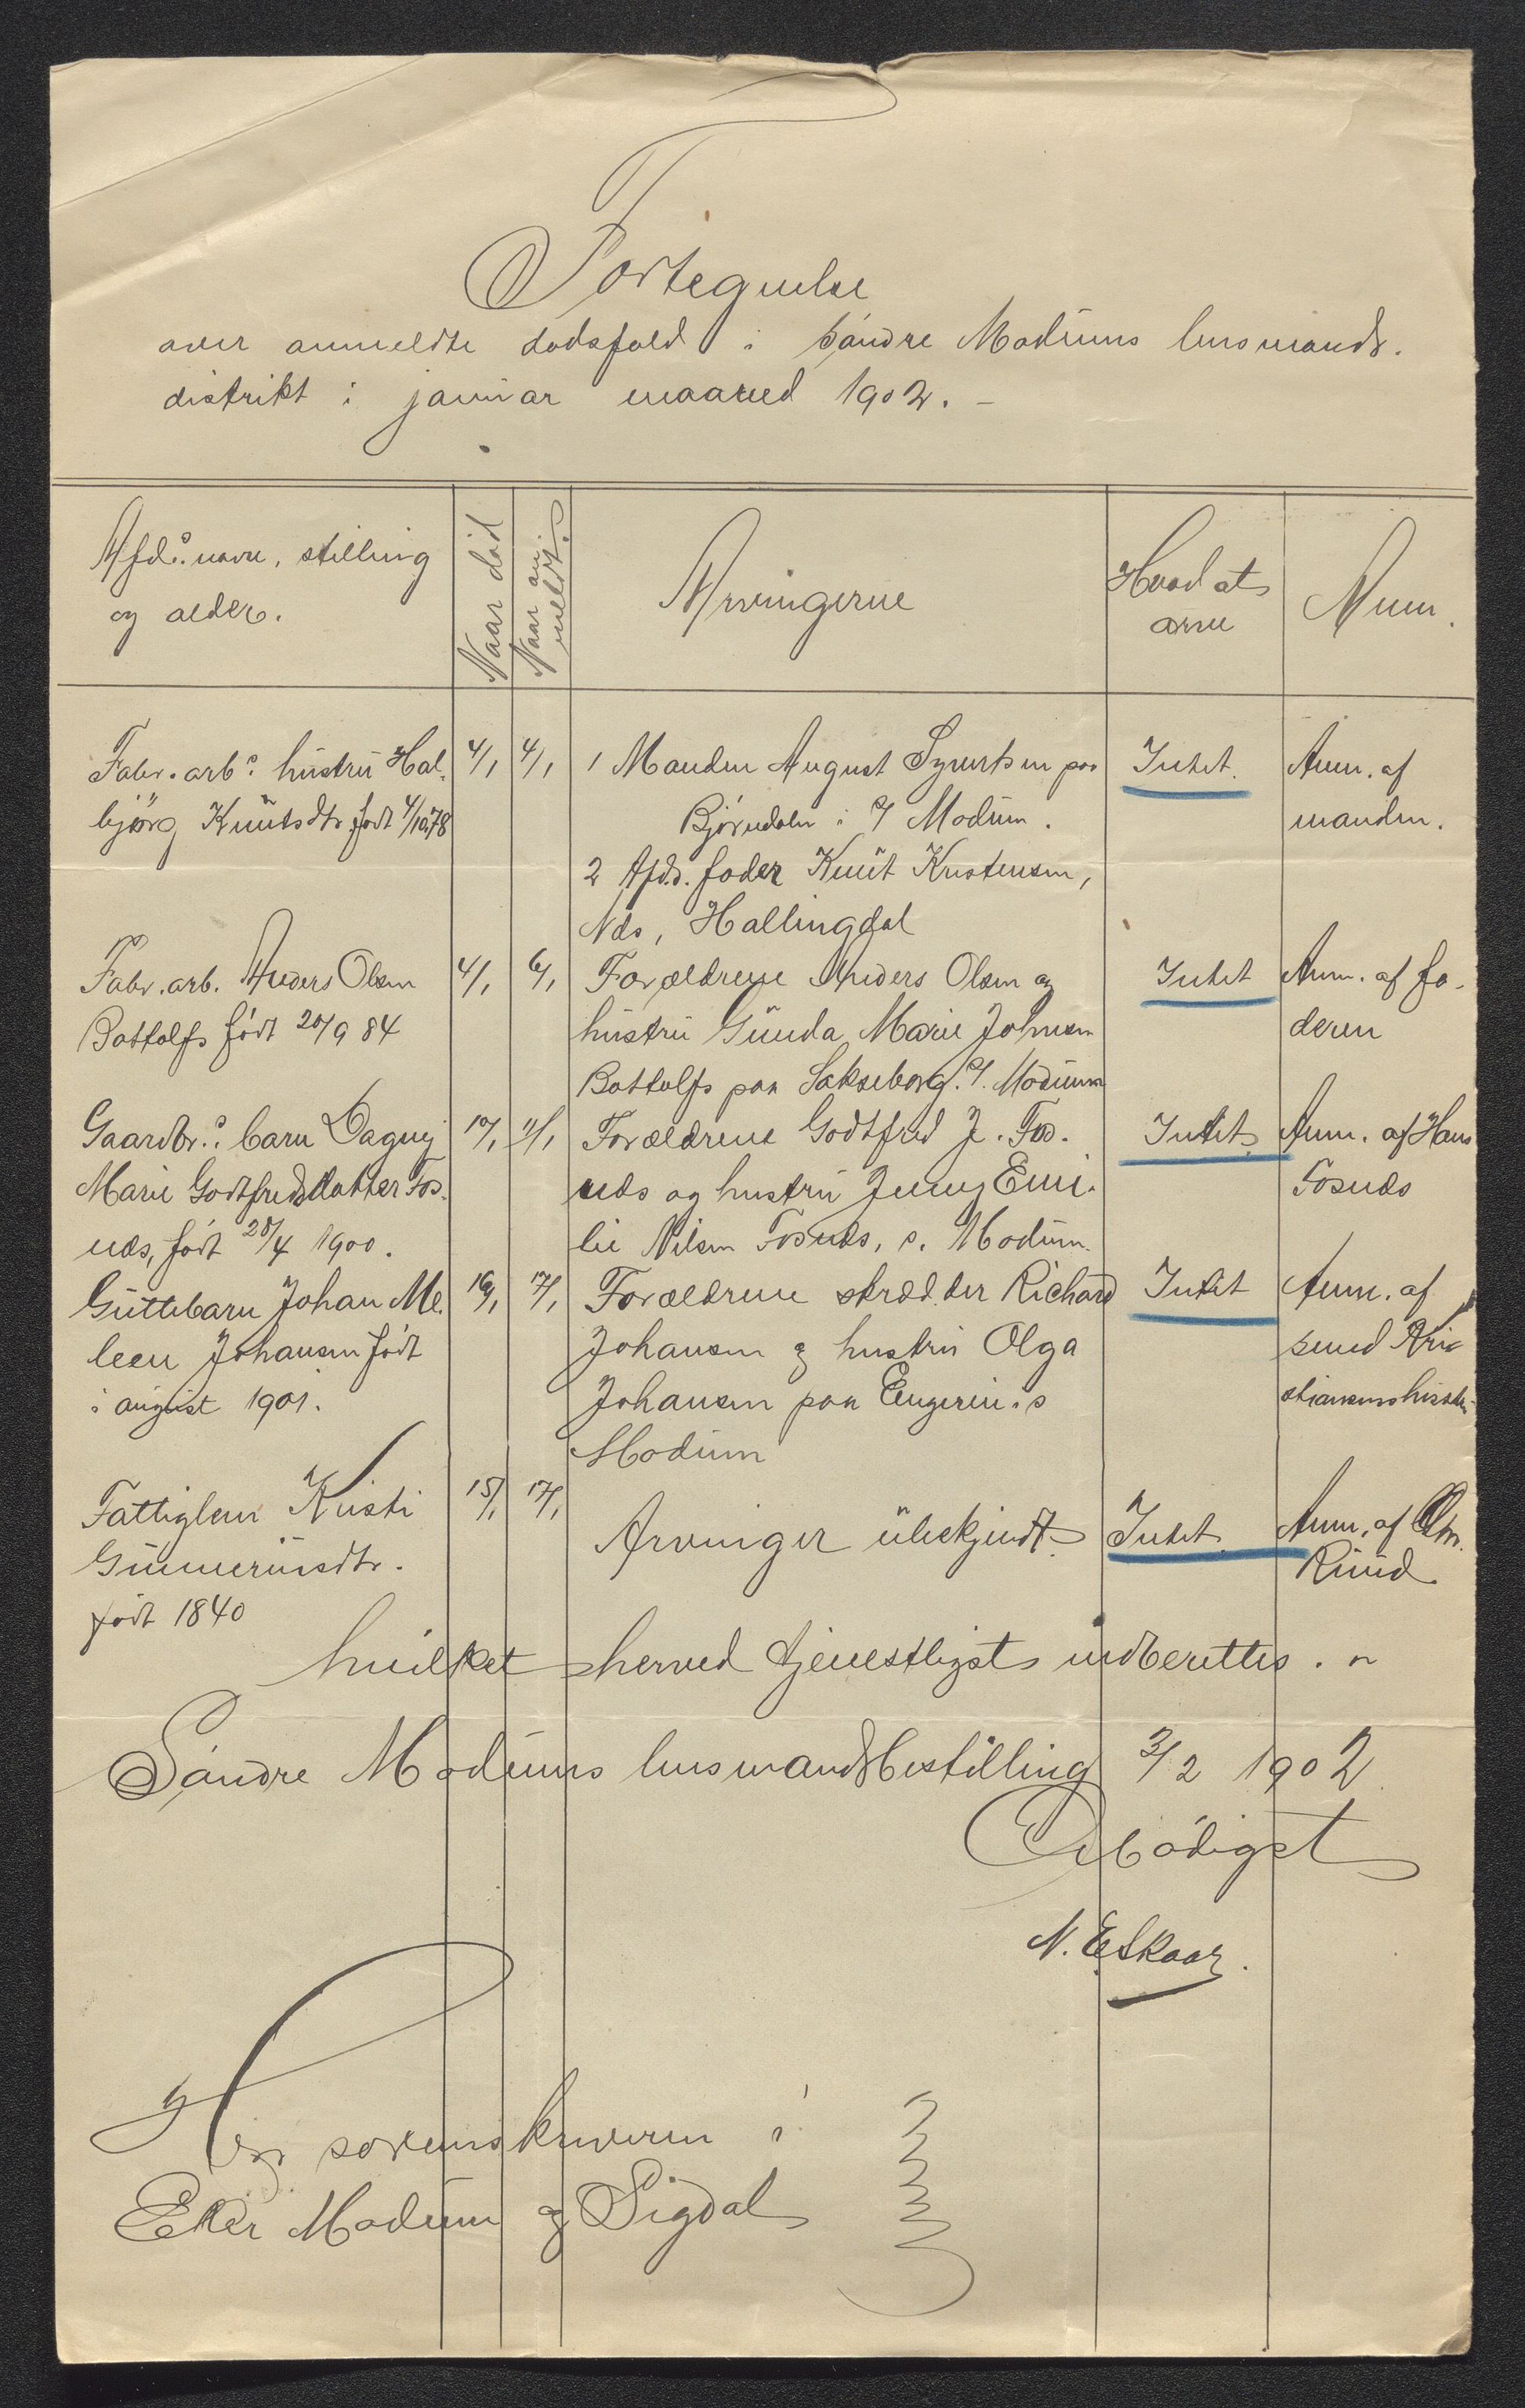 Fortegnelse
over anmeldte dødsfald i søndre Modums lensmands-
distrikt i januar maaned 1902. -
Afdøs navn, stilling
og alder.
Naar død
Naar an-
meldt.
Arvingerne
Hvad at
arve
Anm.
Fabr. arbs. hustru Hal-
bjørg Knutsdtr født 4/10 78
4/1
4/1
1 Manden August Syvertsen paa
Bjørndalen i S/ Modum.
2 Afdø. fader Knut Kristensen,
Nes, Hallingdal
Intet.
Anm. af
manden.
Fabr. arb. Anders Olsen
Bottolfs født 20/9 84
4/1
6/1
Forældrene Anders Olsen og
hustru Gunda Marie Johnsen
Bottolfs paa Sakseborg. S/. Modum
Intet
Anm. af fa-
deren
Gaardbr.s barn Dagny
Marie Godtfredsdatter Fos-
nes, født 28/4 1900.
10/1
11/1
Forældrene Godtfred J. Fos-
nes og hustru Jenny Emi-
lie Nilsen Fosnes, s. Modum.
Intet
Anm. af Hans
Fosnes
Guttebarn Johan Me-
leen Johansen født
i august 1901.
16/1
17/1
Forældrene skrædder Richard
Johansen og hustru Olga
Johansen paa Engerin. s
Modum
Intet
Anm. af
svend Kri-
stiansens hustru
Fattiglem Kristi
Gunnerunsdtr.
født 1840
15/1
17/1
Arvinger ubekjendt.
Intet.
Anm. af
Ruud.
hvilket herved tjenestligst indberettes. -
Søndre Modums lensmandsbestilling 3/2 1902
Ærbødigst
N. E. Skaar.
Herr sorenskriveren i
Eker Modum og Sigdal